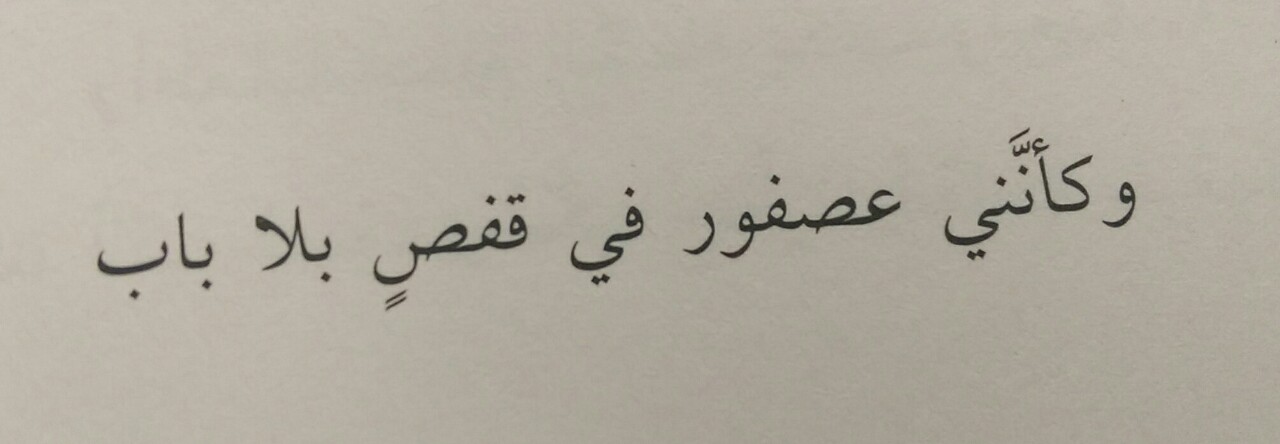 وكأنَّني عصفور في قفصٍ بلا باب